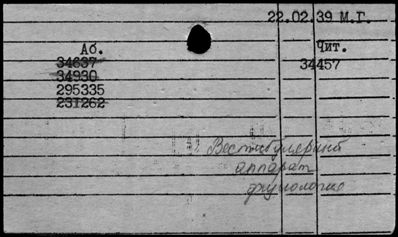 22.02.39 М.Г.
Аб. Чит.
34637 34457
34930
295335
231262
Вестибулярный
аппарат
физиология